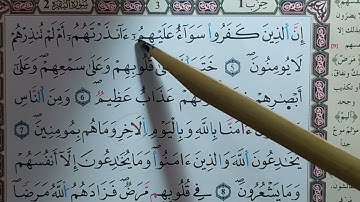 حزب 1
3
إِنَّ ٱلذِينَ كَفَرُواْ سَوَآءٌ عَلَيْهِمُۥٓ ءَآنذَرْتَهُمُۥٓ أَمْ لَمْ تُنذِرْهُمْ
لَا يُومِنُونَ 5 خَتَمَ قُلُوبِهِمْ وَعَلَىٰ سَمْعِهِمْ وَعَلَىٰٓ
أَبْصَٰرِهِمْ عَذَابٌ عَظِيمٌ 6 وَمِنَ ٱلنَّاسِ
ءَامَنَّا بِاللَّهِ وَبِالْيَوْمِ ٱلَاخِرِ وَمَا هُم بِمُومِنِينَ 7
يُخَٰدِعُونَ ٱللَّهَ وَٱلذِينَ ءَامَنُواْ وَمَا يُخَٰدِعُونَ إِلَّآ أَنفُسَهُمْ
وَمَا يَشْعُرُونَ 8 فِے قُلُوبِهِم مَّرَضٌ فَزَادَهُمُ ٱللَّهُ مَرَضاً